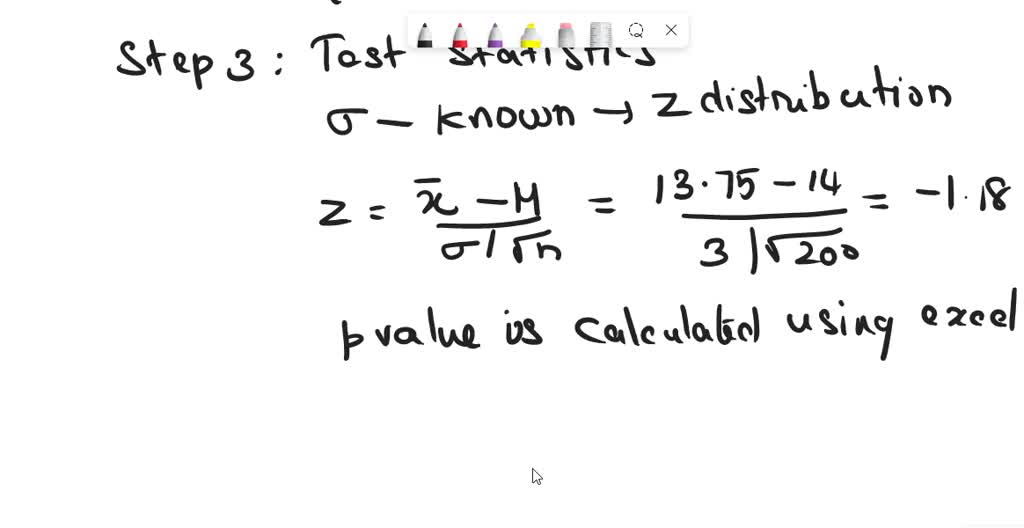 Step 3 : Test statistics
σ – known → z distribution
z = x̄ – μ / σ/√n = 13.75 – 14 / 3/√200 = –1.18
p value is calculated using excel